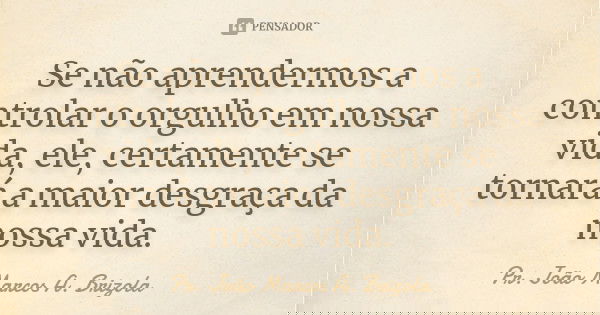 PENSADOR
Se não aprendermos a
controlar o orgulho em nossa
vida, ele, certamente se
tornará a maior desgraça da
nossa vida.
Pr. João
Marcos A. Brizola